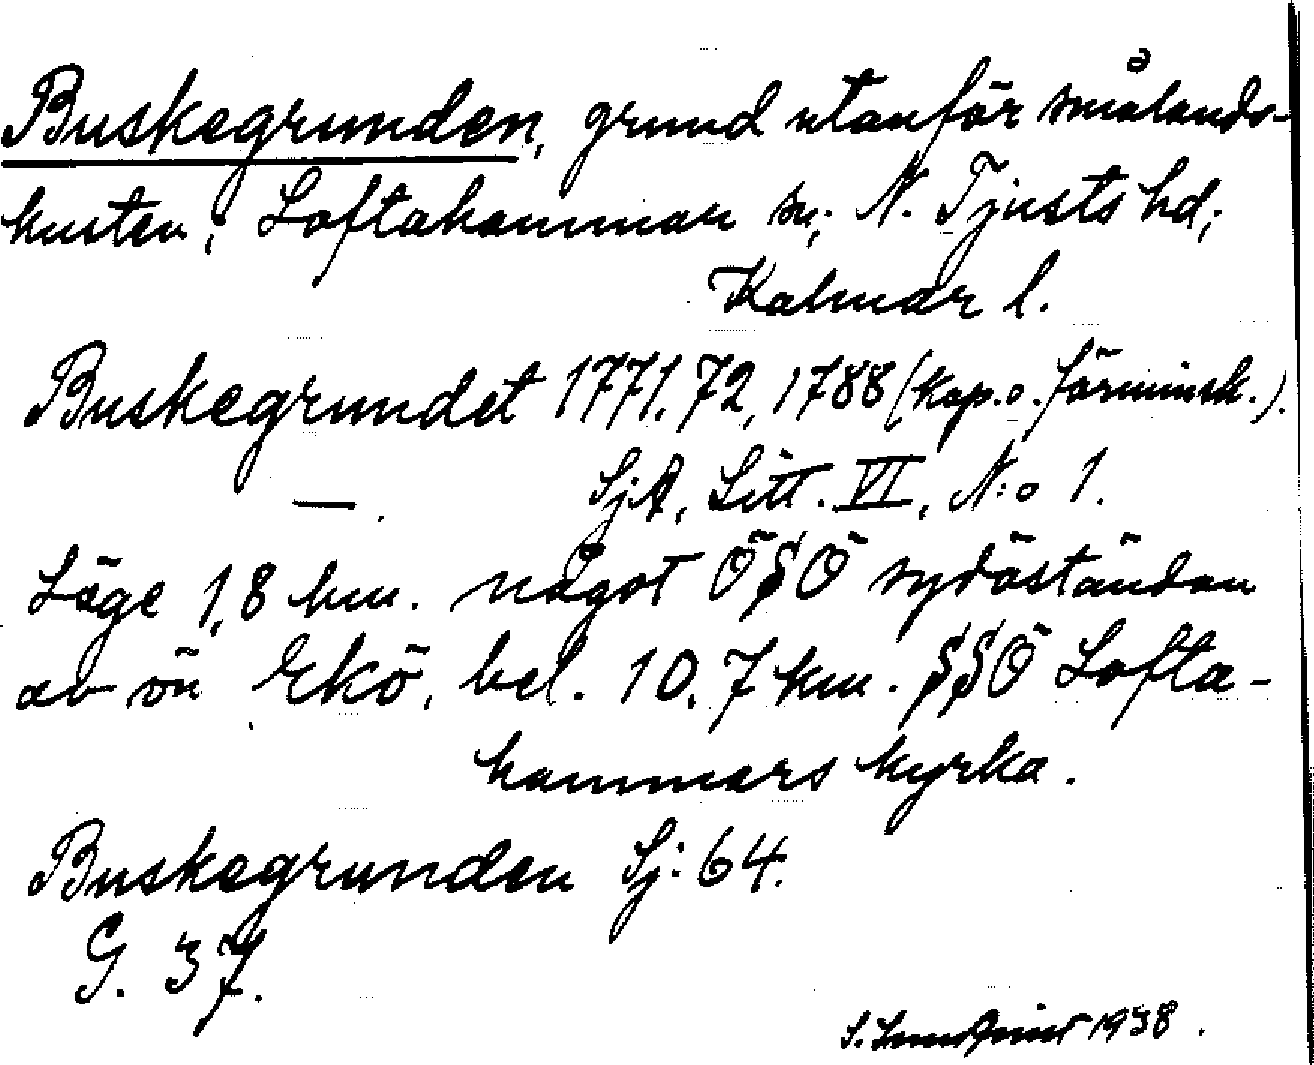 Buskegrunden, grund utanför smålands-
kusten; Loftahammar sn; N. Tjusts hd;
Kalmar l.
Buskegrundet 1771.72, 1788 (kop. o. förminsk.).
— . SjA, Litt. VI, N:o 1.
Läge 1,8 km. något ÖSÖ sydöständan
av ön Ekö, bel. 10.7 km. SSÖ Lofta-
hammars kyrka.
Buskegrunden Sj: 64.
G. 37.
S. 1938.